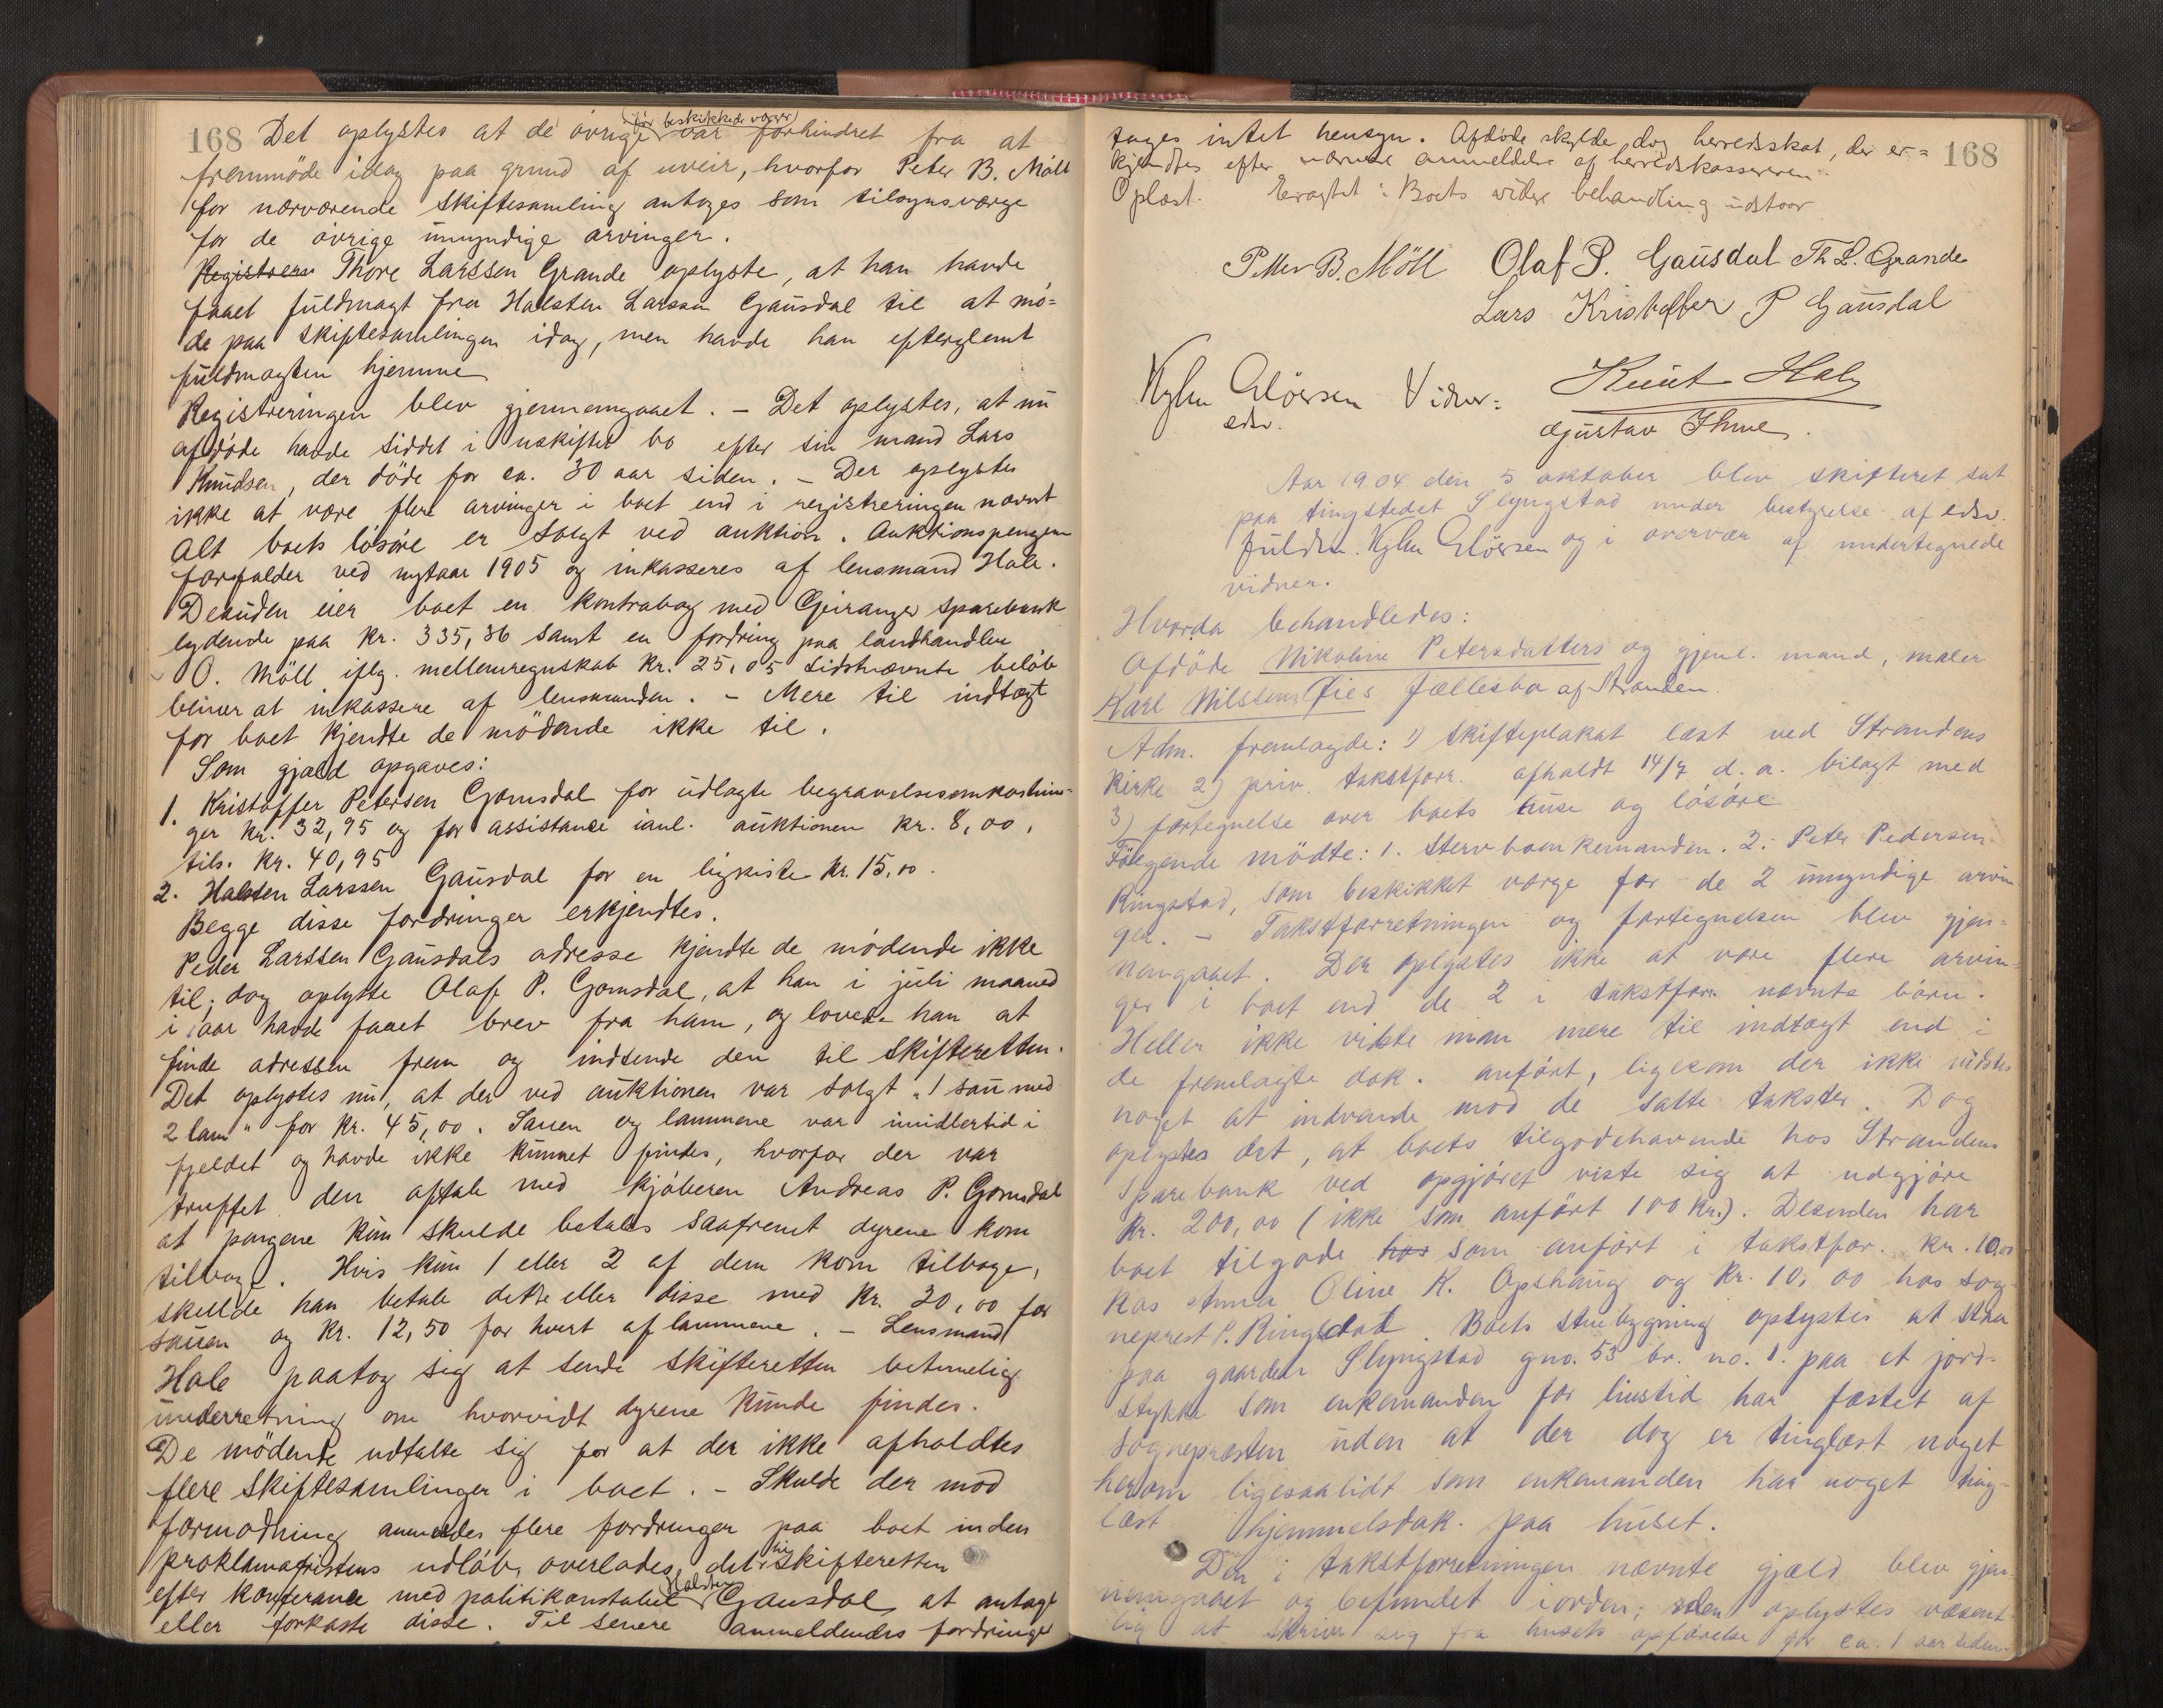 168
(før beskikkede værger)
Det oplystes at de øvrige var forhindret fra at
fremmöde idag paa grund af uveir, hvorfor Peter B. Möll
for nærværende skiftesamling antoges som tilsynsværge
for de övrige umyndige arvinger.
Registrere Thore Larssen Grande oplyste, at han havde
faaet fuldmagt fra Halsten Larssen Gausdal til at mö=
de paa skiftesamlingen idag, men havde han efterglemt
fuldmagten hjemme
Registreringen blev gjennemgaaet. – Det oplystes, at nu
afdöde havde siddet i uskiftet bo efter sin mand Lars
Knudsen, der döde for ca. 30 aar siden. – Der oplystes
ikke at være flere arvinger i boet end i registreringen nævnt
Alt boets lösöre er solgt ved auktion. Auktionspengene
forfalder ved nytaar 1905 og inkasseres af lensmand Hole.
Desuden eier boet en kontrabog med Geiranger sparebank
lydende paa kr. 335,36 samt en fordring paa landhandler
O. Möll iflg. mellemregnskab kr. 25,05 sidstnævnte beløb
bliver at inkassere af lensmanden. – Mere til indtægt
for boet kjendte de mödende ikke til.
Som gjæld opgaves:
1. Kristoffer Petersen Gomsdal for udlagte begravelsesomkostnin=
ger kr. 32,95 og for assistance ianl. auktionen kr. 8,00,
tils. kr. 40,95
2. Halsten Larssen Gausdal for en ligkiste kr. 15,00.
Begge disse fordringer erkjendtes.
Peder Larssen Gausdals adresse kjendte de mödende ikke
til; dog oplyste Olaf P. Gomsdal, at han i juli maaned
i aar havde faaet brev fra ham, og lovede han at
finde adressen frem og indsende den til skifteretten.
Det oplystes nu, at der ved auktionen var solgt "1 sau med
2 lam" for kr. 45,00. Sauen og lammene var imidlertid i
fjeldet og havde ikke kunnet findes, hvorfor der var
truffet den aftale med kjöberen Andreas P. Gomsdal
at pengene kun skulde betales saafremt dyrene kom
tilbage. Hvis kun 1 eller 2 af dem kom tilbage,
skulde han betale dette eller disse med kr. 20,00 for
sauen og kr. 12,50 for hvert af lammene. – Lensmand
Hole paatog sig at sende skifteretten betimelig
underretning om hvorvidt dyrene kunde findes.
De mödende udtalte sig for at der ikke afholdtes
flere skiftesamlinger i boet. – Skulde der mod
formodning anmeldes flere fordringer paa boet inden
proklamafristens udlöb, overlades det til skifteretten
efter konferance med politikonstabel Halsten Gausdal at antage
eller forkaste disse. Til senere anmeldendes fordringer
168
tages intet hensyn. Afdöde skylde dog herredsskat, der er=
kjendtes efter nærmere anmeldelse af herredskassereren.
Oplæst. Eragtet: Boets videre behandling udstaar
Petter B. Möll Olaf P. Gausdal Th L. Grande
Lars Kristoffer P Gausdal
Vidner: Knut Hole
edsv. Gustav Ihme.
Aar 1904 den 5 oktober blev skifteret sat
paa tingstedet Slyngstad under bestyrelse af edsv.
fuldm. og i overvær af undertegnede
vidner.
Hvorda behandledes:
Afdöde Nikoline Petersdatters og gjenl. mand, maler
Karl Nilssens Øies fællesbo af Stranden.
Adm. fremlagde: 1) skifteplakat læst ved Strandens
kirke 2) priv. takstforr. afholdt 14/7 d. a. bilagt med
3) fortegnelse over boets huse og lösöre
Fölgende mödte: 1. Stervboenkemanden. 2. Peter Pedersen
Ringstad, som beskikket værge for de 2 umyndige arvin
ger. – Takstforretningen og fortegnelsen blev gjen=
nemgaaet. Der oplystes ikke at være flere arvin=
ger i boet end de 2 i takstforr. nævnte börn.
Heller ikke vidste man mere til indtægt end i
de fremlagte dok. anfört, ligesom der ikke vidstes
noget at indvende mod de satte takster. Dog
oplystes det, at boets tilgodehavende hos Strandens
Sparebank ved opgjöret viste sig at udgjöre
kr. 200,00 (ikke som anfört 100 kr.). Desuden har
boet tilgode hos som anfört i takstfor. kr. 10,00
hos Anna Oline K. Opshaug og kr. 10,00 hos sog
neprest P. Ringdal. Boets stuebygning oplystes at staa
paa gaarden Slyngstad gno. 53 br. no. 1. paa et jord-
stykke som enkemanden for livstid har fæstet af
sognepresten uden at der dog er tinglæst noget
herom ligesaalidt som enkemanden har noget ting-
læst hjemmelsdok. paa huset.
Den i takstforretningen nævnte gjæld blev gjen
nemgaaet og befundet iorden; den oplystes væsent
lig at skrive sig fra husets opförelse for ca. 1 aar siden.